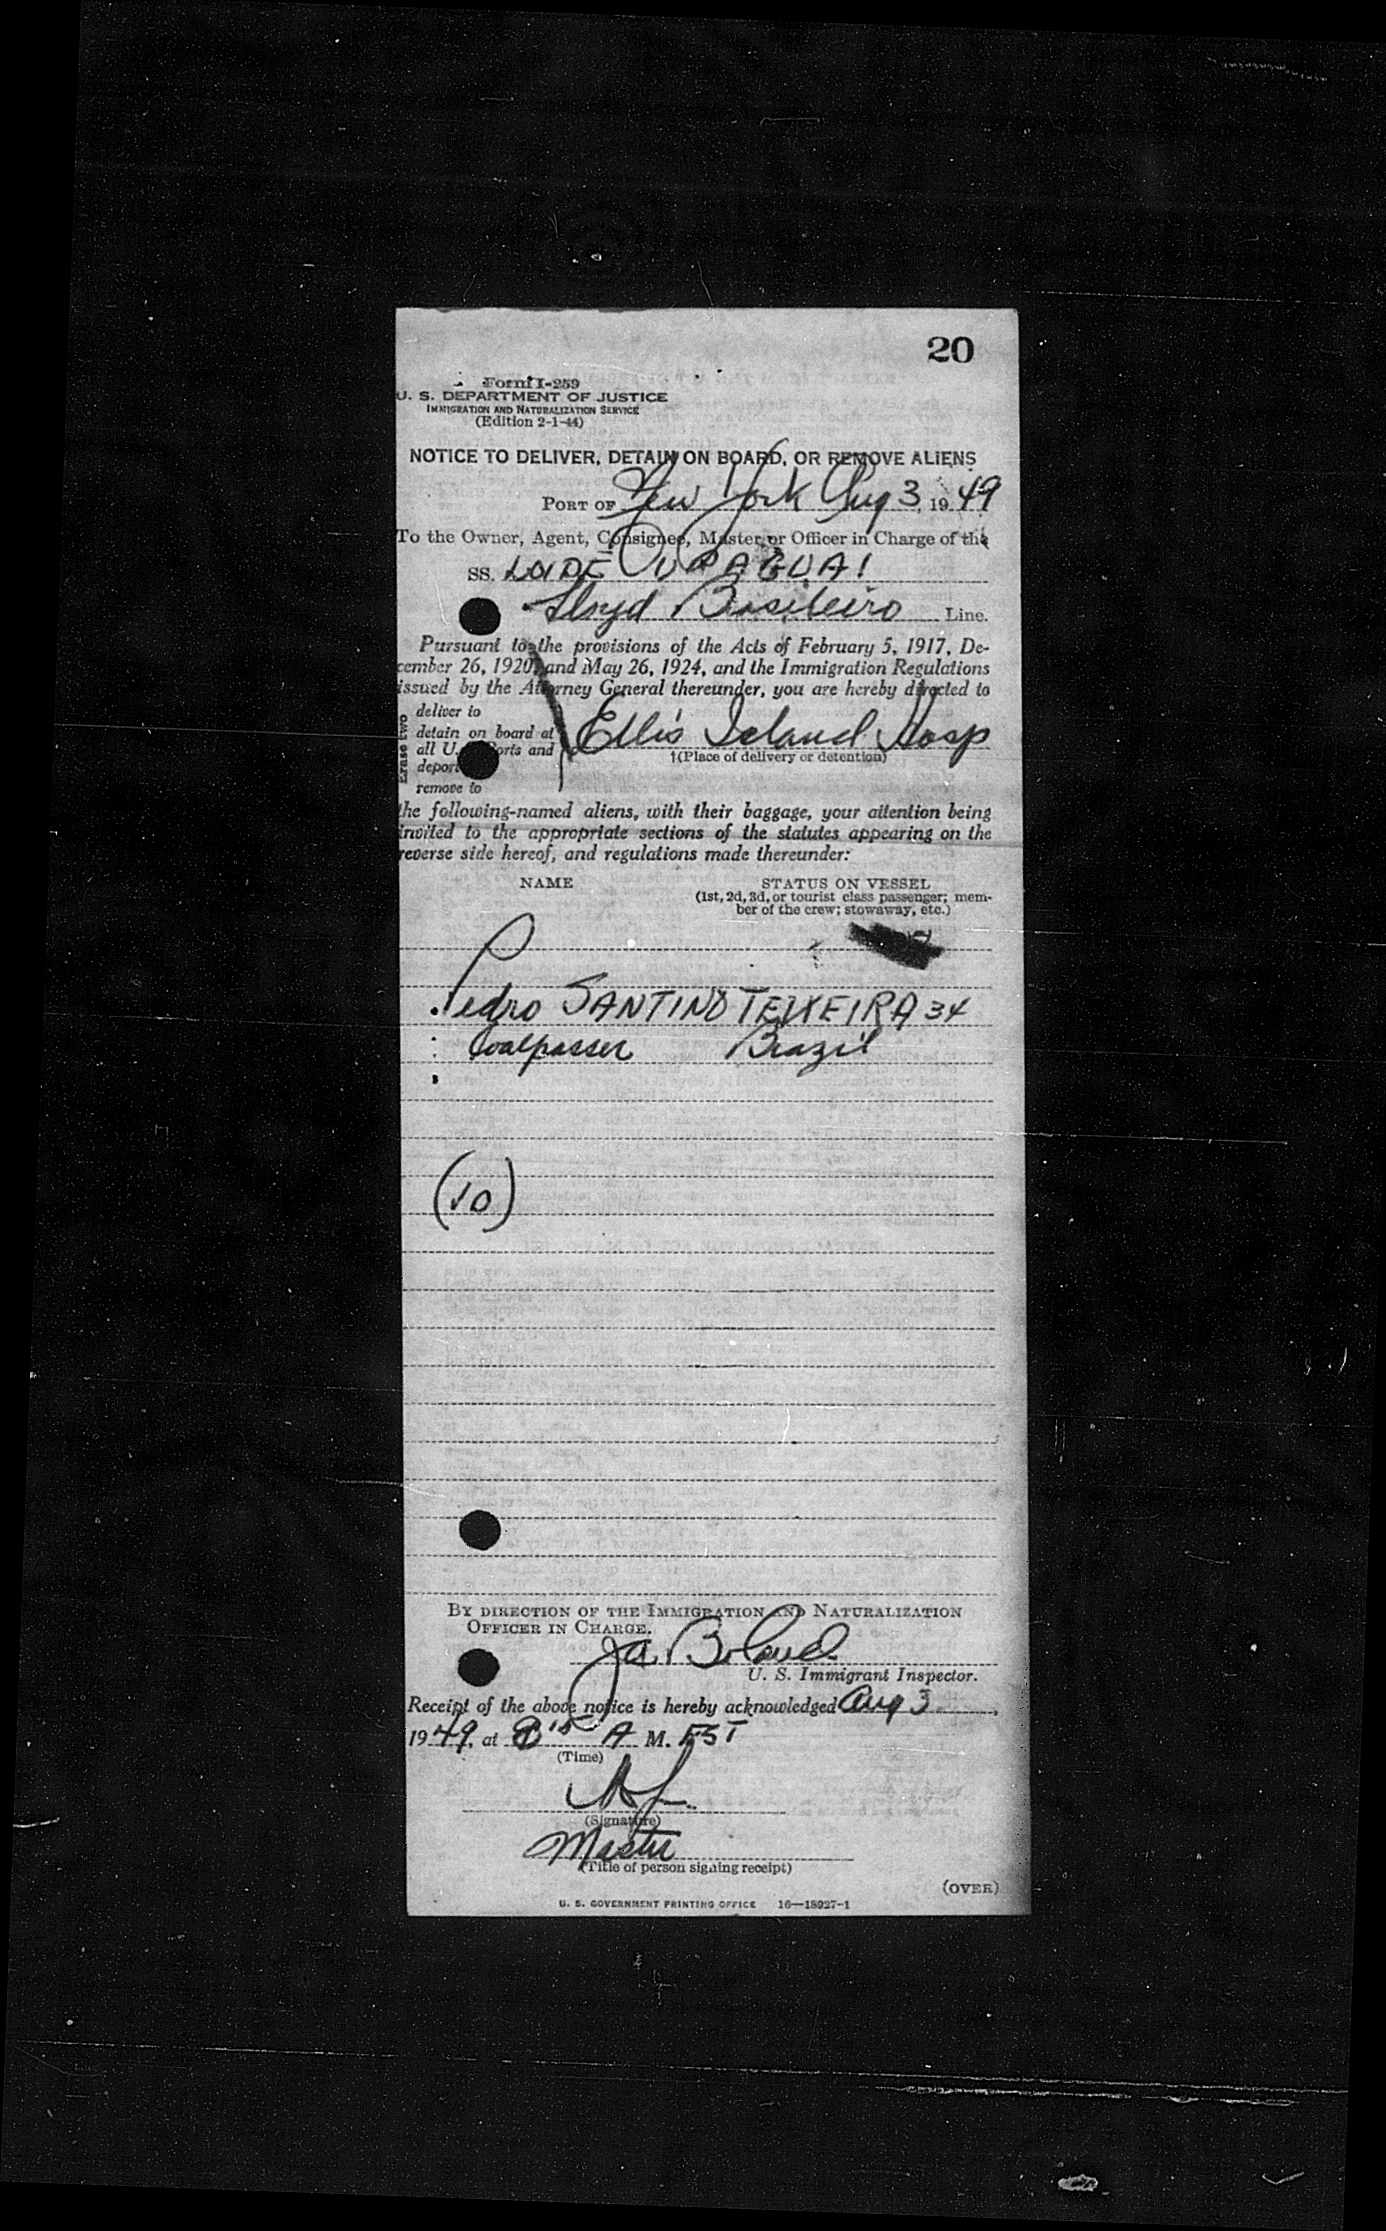 20
Form I-259
U. S. DEPARTMENT OF JUSTICE
IMMIGRATION AND NATURALIZATION SERVICE
(Edition 2-1-44)
NOTICE TO DELIVER, DETAIN ON BOARD, OR REMOVE ALIENS
PORT OF New York Aug 3, 1949
To the Owner, Agent, Consignee, Master, or Officer in Charge of the
SS. LOIDE URAGUAI
Lloyd Brasileiro Line.
Pursuant to the provisions of the Acts of February 5, 1917, De-
cember 26, 1920, and May 26, 1924, and the Immigration Regulations
issued by the Attorney General thereunder, you are hereby directed to
Erase two
deliver to
detain on board at
all U. Ports and
deport
remove to
Ellis Island Hosp
†(Place of delivery or detention)
the following-named aliens, with their baggage, your attention being
invited to the appropriate sections of the statutes appearing on the
reverse side hereof, and regulations made thereunder:
NAME STATUS ON VESSEL
(1st, 2d, 3d, or tourist class passenger; mem-
ber of the crew; stowaway, etc.)
Pedro SANTINO TEIXEIRA 34
Coalpasser Brazil
(10)
BY DIRECTION OF THE IMMIGRATION AND NATURALIZATION
OFFICER IN CHARGE.
Ja Boland
U. S. Immigrant Inspector.
Receipt of the above notice is hereby acknowledged Aug 3,
1949, at A M. EST
(Time)
(Signature)
Master
(Title of person signing receipt)
(OVER)
U. S. GOVERNMENT PRINTING OFFICE 16—18927-1